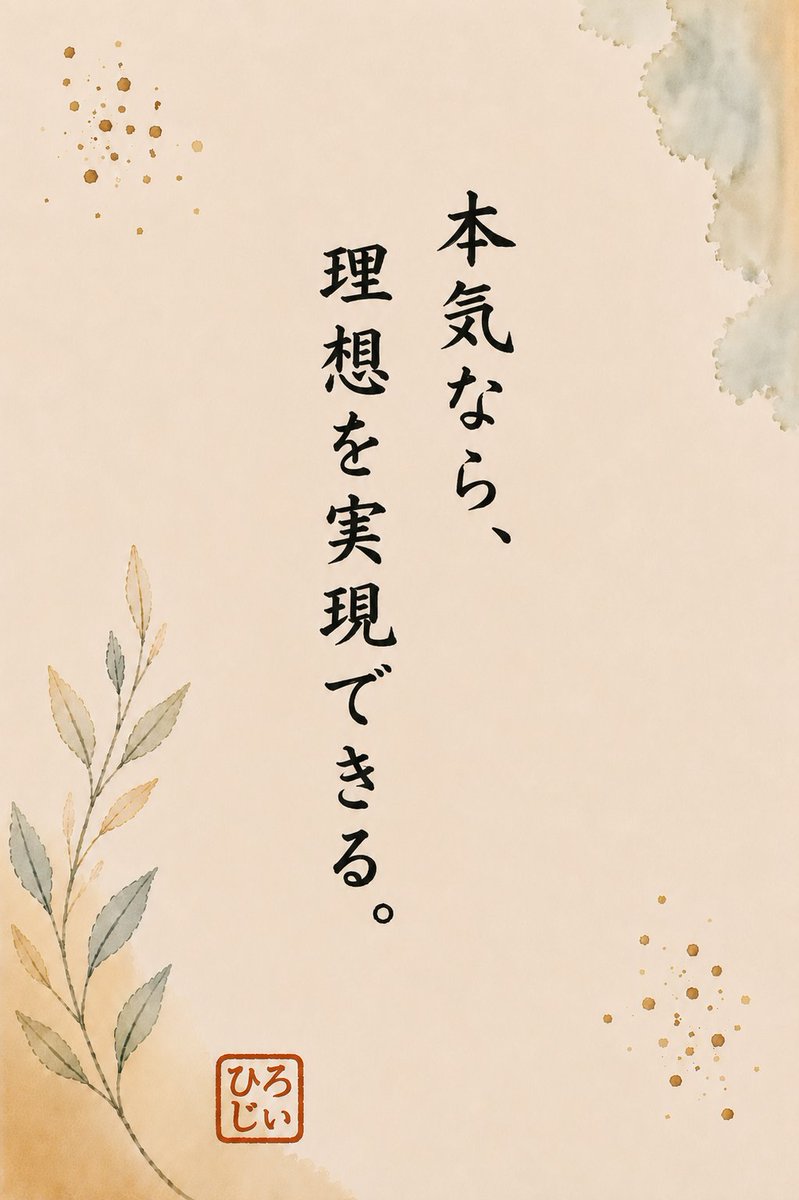 本気なら、
理想を実現できる。
ろい
ひじ